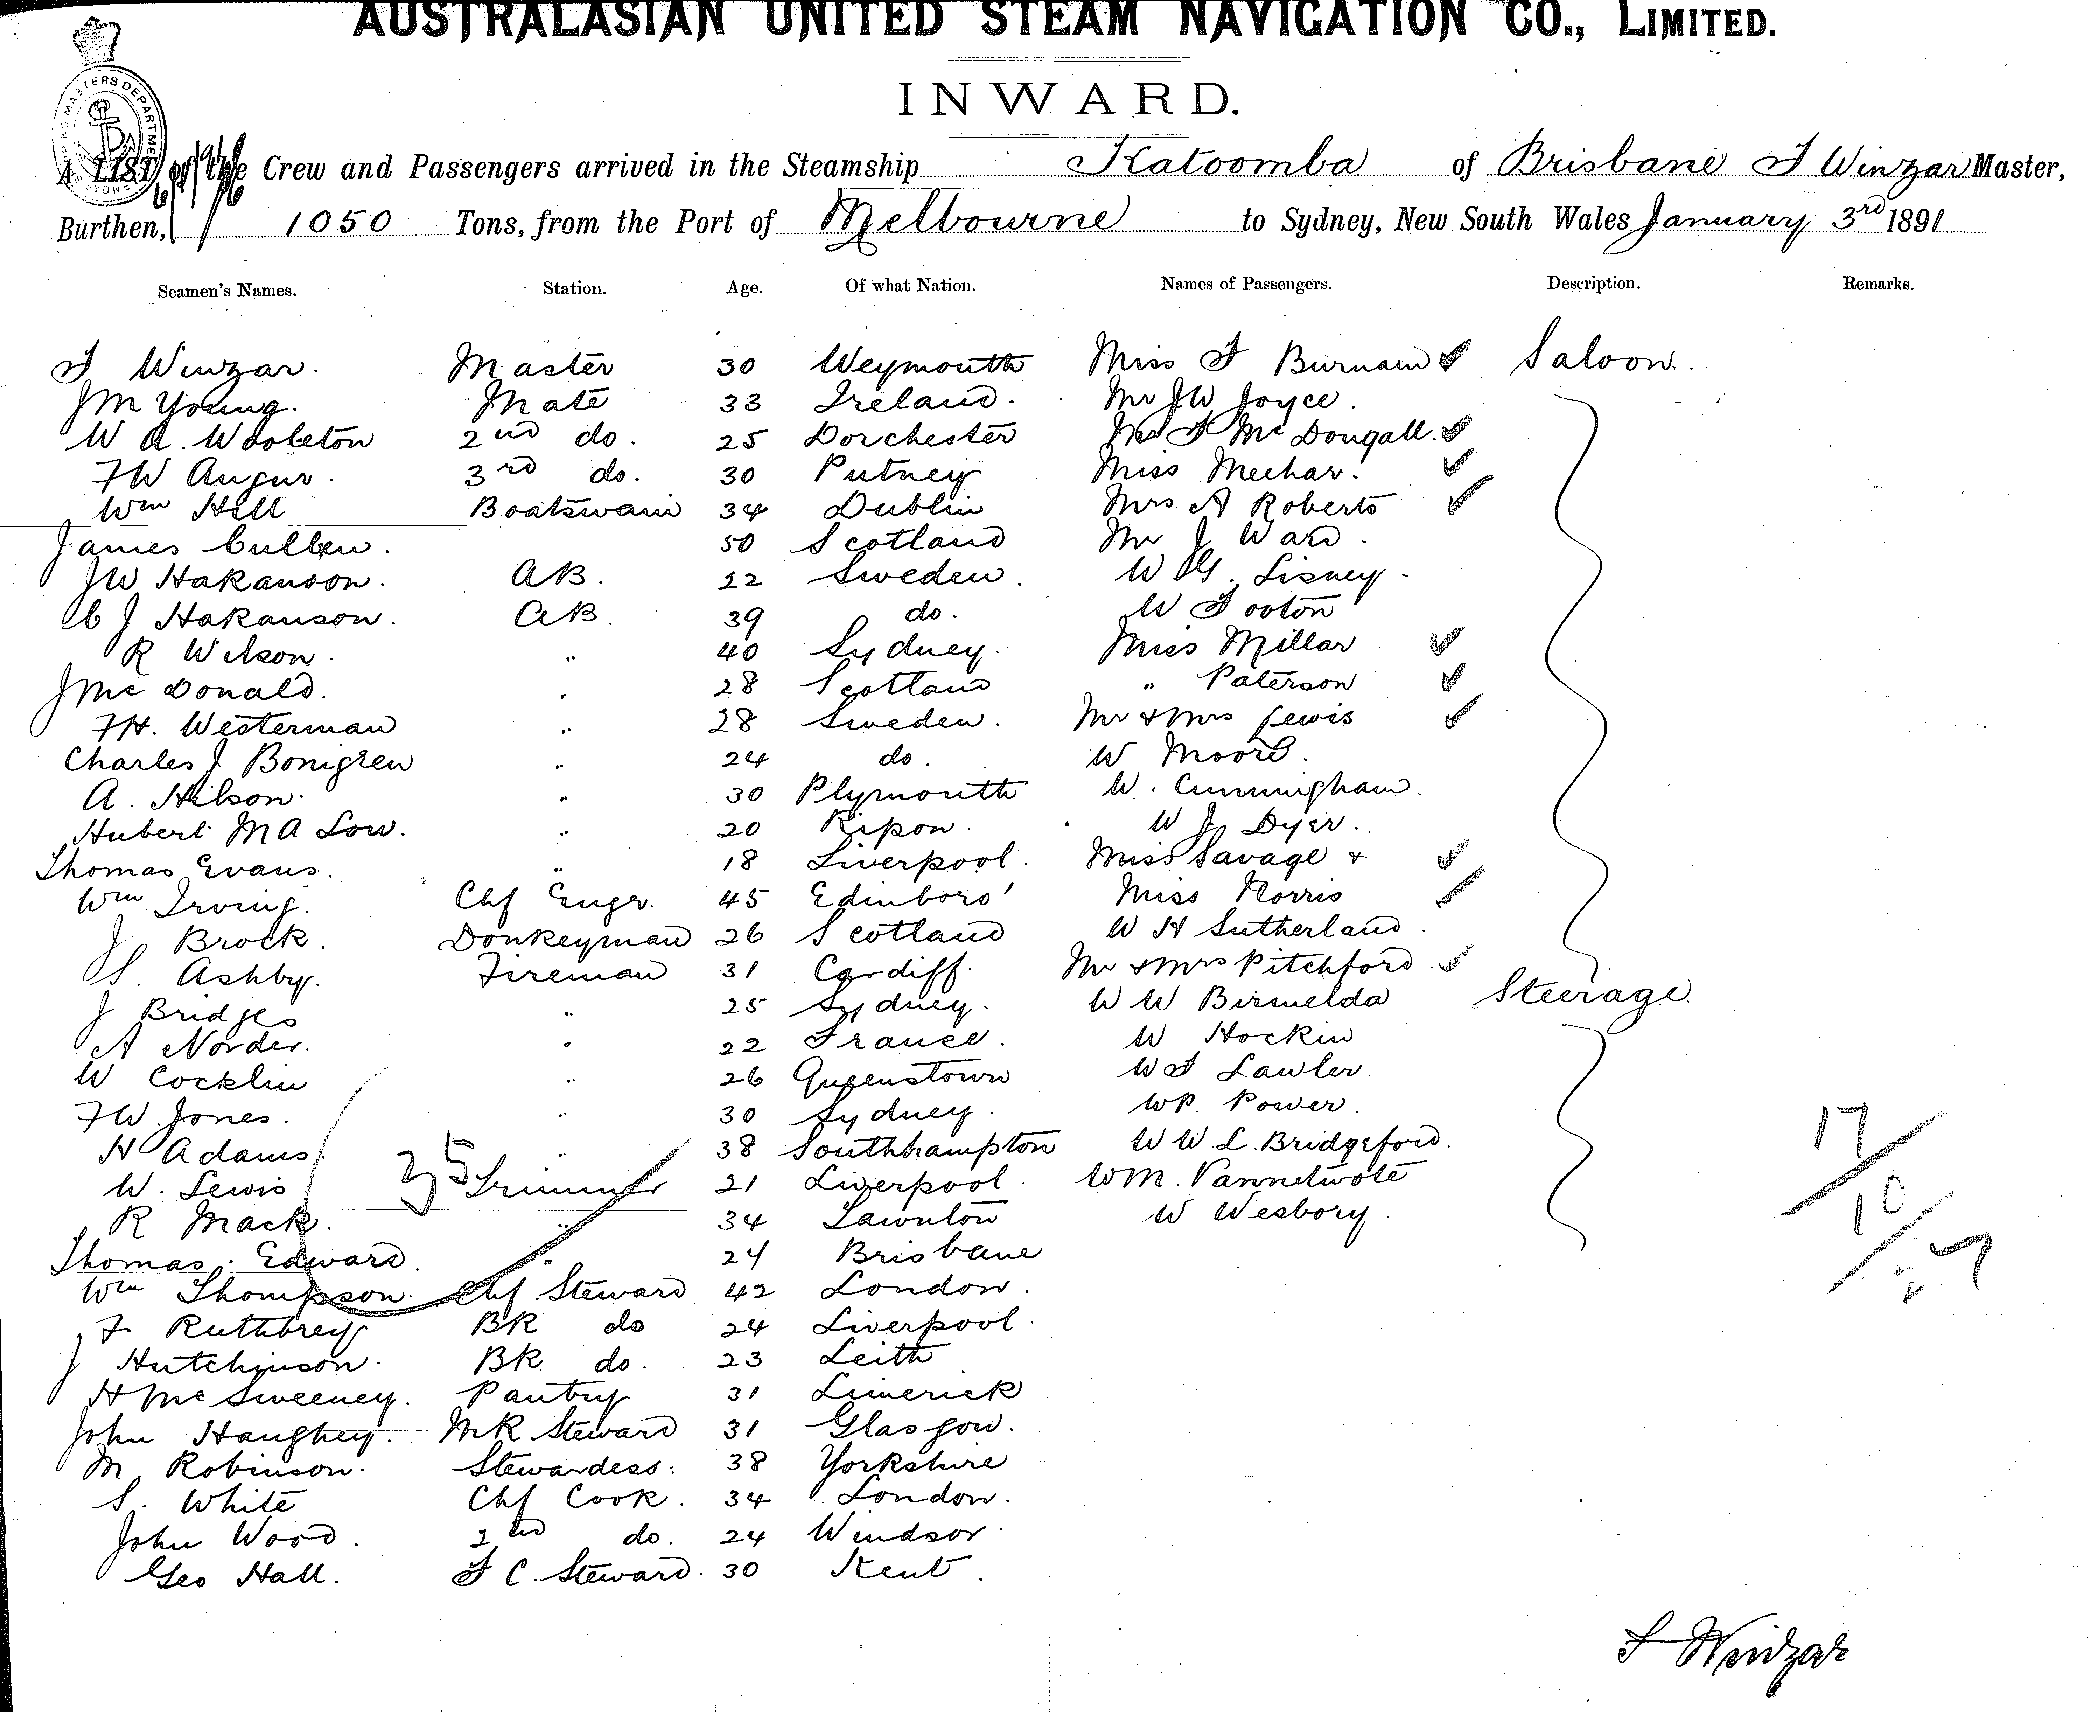 AUSTRALASIAN UNITED STEAM NAVIGATION CO., LIMITED.
INWARD.
A LIST of the Crew and Passengers arrived in the Steamship Katoomba of Brisbane T Winzar Master,
Burthen, 1050 Tons, from the Port of Melbourne to Sydney, New South Wales January 3rd 1891
Seamen's Names. Station. Age. Of what Nation. Names of Passengers. Description. Remarks.
T Winzar. Master 30 Weymouth Miss T Burnam Saloon.
J M Young. Mate 33 Ireland. Mr J W Joyce.
W A. Woolcton 2nd do. 25 Dorchester T McDougall.
F W Angus. 3rd do. 30 Putney Miss Mechar.
Wm Hill Boatswain 34 Dublin Mrs A Roberts
James Cullen. 50 Scotland Mr J Ward.
J W Hakanson. AB. 22 Sweden. W G. Lisney.
C J Hakanson. AB. 39 do. W Tooton
R Wilson. " 40 Sydney. Miss Millar
J McDonald. " 28 Scotland " Paterson
F H. Westerman " 28 Sweden. Mr & Mrs Lewis
Charles J Bonigren " 24 do. W Moore.
A. Hilson. " 30 Plymouth W. Cunningham.
Hubert M A Low. " 20 Ripon. W J Dyer.
Thomas Evans. " 18 Liverpool. Miss Savage &
Wm Irving. Chf Engr. 45 Edinboro' Miss Norris
J Brock. Donkeyman 26 Scotland W H Sutherland.
S. Ashby. Fireman 31 Cardiff. Mr & Mrs Pitchford
J Bridges " 25 Sydney. W W Birmelda Steerage.
A Norder. " 22 France. W Hockin
W Cocklin " 26 Queenstown W T Lawler
F W Jones. " 30 Sydney. W P. Power.
H Adams " 38 Southhampton W W L. Bridgeford.
W. Lewis Trimmer 21 Liverpool. W M. Vannetwote
R Mack. " 34 Lawnton W Wesbory.
Thomas. Edward. " 24 Brisbane
Wm Thompson. Chf Steward 42 London.
F Ruthbrey BK do 24 Liverpool.
J Hutchinson. BK do. 23 Leith
H McSweeney. Pantry 31 Limerick
John Haughey. MR Steward 31 Glasgow.
M Robinson. Stewardess. 38 Yorkshire
S. White Chf Cook. 34 London.
John Wood. 2nd do. 24 Windsor.
Geo Hall. F C. Steward. 30 Kent.
35
17
10
T Winzar